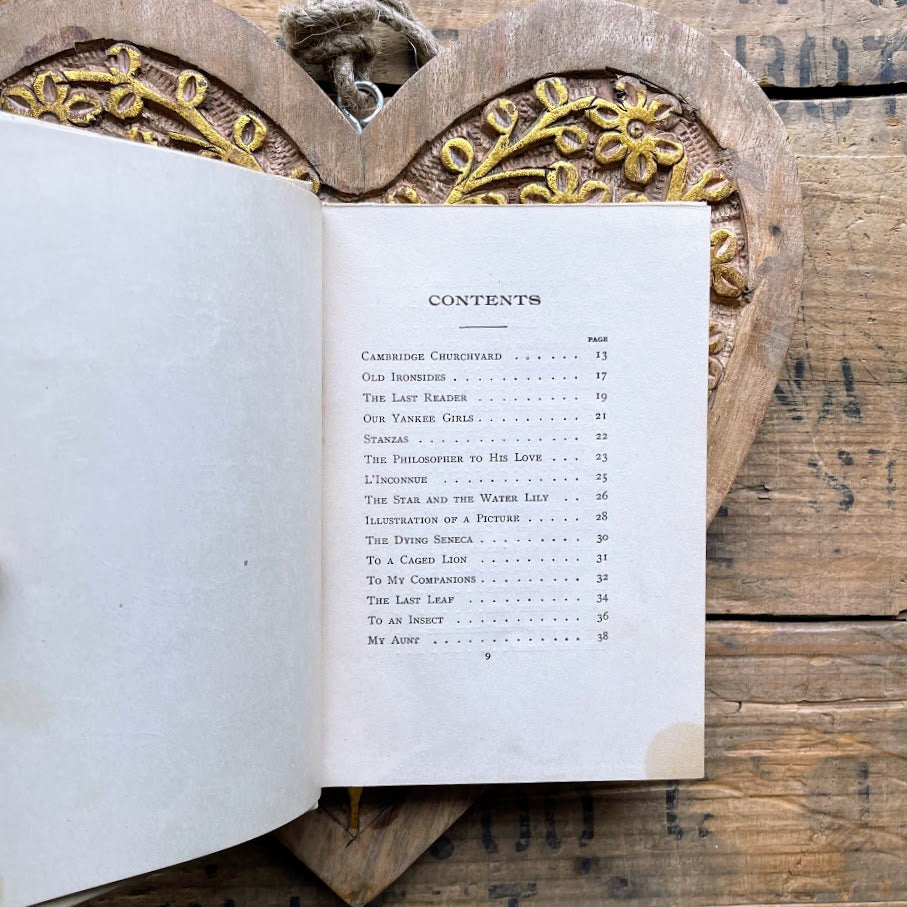 CONTENTS
PAGE
CAMBRIDGE CHURCHYARD . . . . . . 13
OLD IRONSIDES . . . . . . . . . . . 17
THE LAST READER . . . . . . . . . 19
OUR YANKEE GIRLS . . . . . . . . . 21
STANZAS . . . . . . . . . . . . . . 22
THE PHILOSOPHER TO HIS LOVE . . . 23
L'INCONNUE . . . . . . . . . . . . 25
THE STAR AND THE WATER LILY . . 26
ILLUSTRATION OF A PICTURE . . . . . 28
THE DYING SENECA . . . . . . . . . 30
TO A CAGED LION . . . . . . . . . 31
TO MY COMPANIONS . . . . . . . . . 32
THE LAST LEAF . . . . . . . . . . 34
TO AN INSECT . . . . . . . . . . . 36
MY AUNT . . . . . . . . . . . . . 38
9